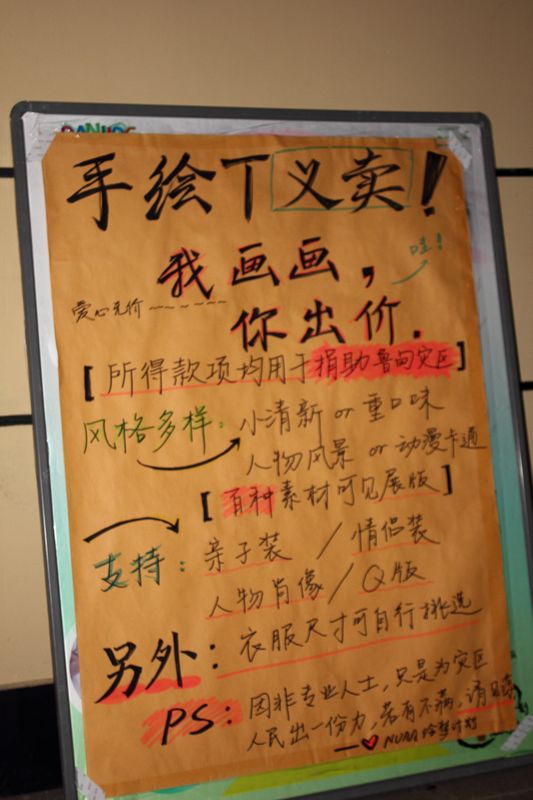 手绘T义卖！
我画画，
哇！
爱心无价~~~~~~
你出价.
[所得款项均用于捐助鲁甸灾区]
风格多样：小清新 or 重口味
人物风景 or 动漫卡通
[百种素材可见展版]
支持：亲子装 / 情侣装
人物肖像 / Q版
另外：衣服尺寸可自行挑选
PS：因非专业人士，只是为灾区
人民出一份力，若有不满，请